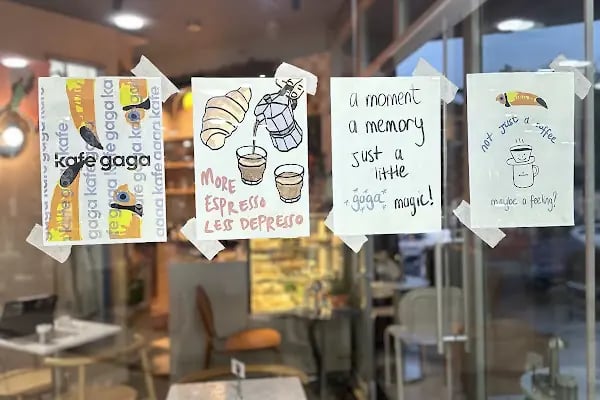 kafe gaga
MORE
ESPRESSO
LESS DEPRESSO
a moment
a memory
just a
little
gaga magic!
not just a coffee
maybe a feeling?